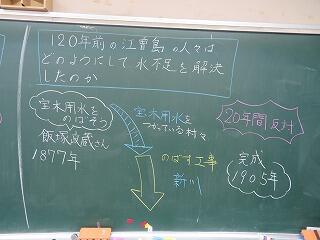 120年前の江曽島の人々は
どのようにして水不足を解決
したのか
宝木用水を
のばそう
飯塚良蔵さん
1877年
宝木用水を
つかっている村々
のばす工事
新川
20年間反対
完成
1905年